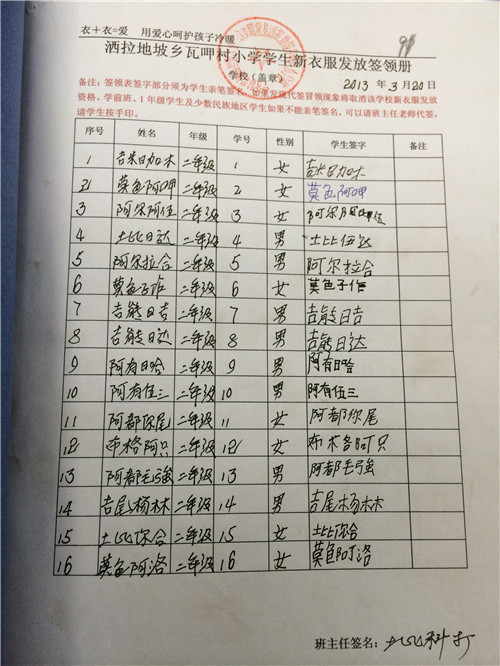 衣+衣=爱 用爱心呵护孩子冷暖
洒拉地坡乡瓦呷村小学学生新衣服发放签领册
学校（盖章） 2013年3月20日
备注：签领表签字部分须为学生亲笔签名，如果发现代签冒领现象将取消该学校新衣服发放
资格。学前班、1年级学生及少数民族地区学生如果不能亲笔签名，可以请班主任老师代签，
请学生按手印。
序号 姓名 年级 学号 性别 学生签字 备注
1 吉米日加木 二年级 1 女 吉米日加木
2 莫色阿呷 二年级 2 女 莫色阿呷
3 阿尔阿伍 二年级 3 女
4 土比日达 二年级 4 男 土比伍达
5 阿尔拉合 二年级 5 男 阿尔拉合
6 莫色子作 二年级 6 女 莫色子作
7 吉能日吉 二年级 7 男 吉能日吉
8 吉能日达 二年级 8 男 吉能日达
9 阿有日哈 二年级 9 男 阿有日哈
10 阿有伍三 二年级 10 男 阿有伍三
11 阿都你尾 二年级 11 女 阿都你尾
12 布格阿只 二年级 12 女 布木各阿只
13 阿都毛强 二年级 13 男 阿都毛强
14 吉尾杨林 二年级 14 男 吉尾杨林
15 土比你合 二年级 15 女 土比你合
16 莫色阿洛 二年级 16 女 莫色阿洛
班主任签名：